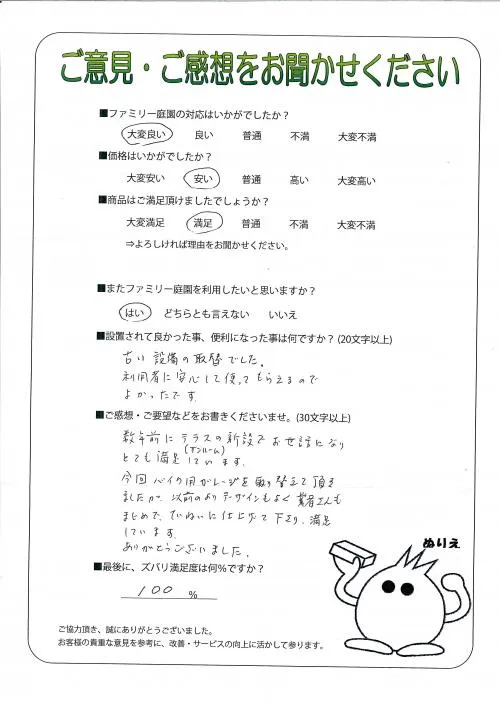 ご意見・ご感想をお聞かせください
■ファミリー庭園の対応はいかがでしたか？
大変良い 良い 普通 不満 大変不満
■価格はいかがでしたか？
大変安い 安い 普通 高い 大変高い
■商品はご満足頂けましたでしょうか？
大変満足 満足 普通 不満 大変不満
⇒よろしければ理由をお聞かせください。
■またファミリー庭園を利用したいと思いますか？
はい どちらとも言えない いいえ
■設置されて良かった事、便利になった事は何ですか？(20文字以上)
古い設備の取替でした。
利用者に安心して使ってもらえるので
よかったです
■ご感想・ご要望などをお書きくださいませ。(30文字以上)
数年前にテラスの新設でお世話になり
(サンルーム)
とても満足しています。
今回バイク用ガレージを取り替えて頂き
ましたが 以前のよりデザインもよく業者さんも
まじめで、ていねいに仕上げて下さり、満足
しています
ありがとうございました。
■最後に、ズバリ満足度は何%ですか？
100 %
ぬりえ
ご協力頂き、誠にありがとうございました。
お客様の貴重な意見を参考に、改善・サービスの向上に活かして参ります。